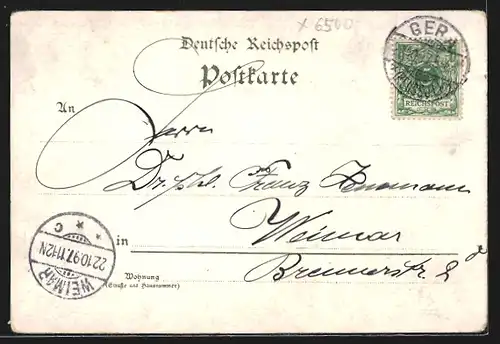 x 6500
GERA
Deutsche Reichspost
Postkarte
REICHSPOST
An
Herrn
Dr. phil. Franz
in Weimar
WEIMAR
22.10.97.11-12N
* * C
Wohnung
(Straße und Hausnummer)